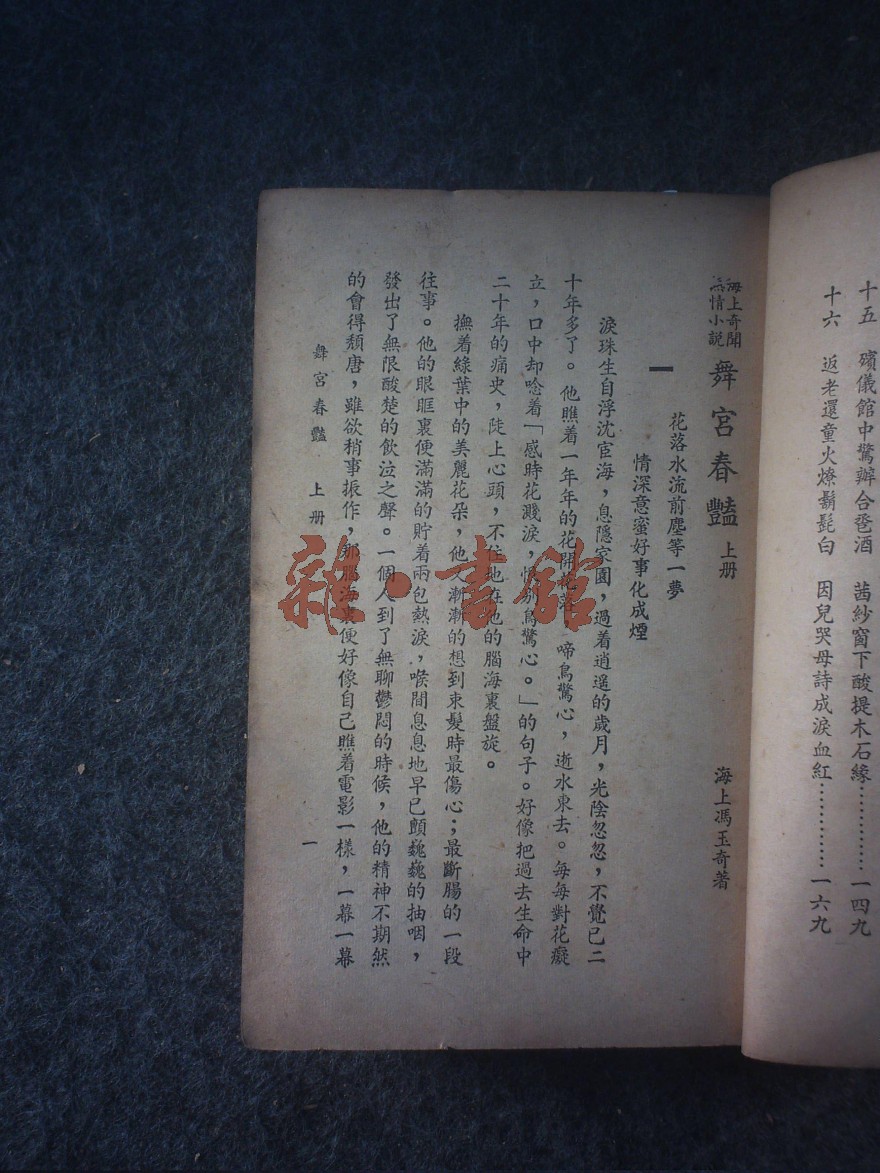 十五　殯儀館中驚辦合卺酒　茜紗窗下酸提木石緣…………一四九
十六　返老還童火燎鬍髭白　因兒哭母詩成淚血紅…………一六九
海上奇聞
情小說
舞宮春豔　上册
海上馮玉奇著
一
花落水流前塵等一夢
情深意蜜好事化成煙
淚珠生自浮沈宦海，息隱家園，過着逍遥的歲月，光陰忽忽，不覺已二
十年多了。他瞧着一年年的花開花落　啼鳥驚心，逝水東去。每每對花癡
立，口中却唸着「感時花濺淚，恨別鳥驚心。」的句子。好像把過去生命中
二十年的痛史，陡上心頭，不住地在他的腦海裏盤旋。
撫着綠葉中的美麗花朵，他又漸漸的想到束髮時最傷心；最斷腸的一段
往事。他的眼眶裏便滿滿的貯着兩包熱淚，喉間息息地早已顫巍巍的抽咽，
發出了無限酸楚的飲泣之聲。一個人到了無聊鬱悶的時候，他的精神不期然
的會得頹唐，雖欲稍事振作，那腦海裏便好像自己瞧着電影一樣，一幕一幕
舞宮春豔　上册
一
雜·書館